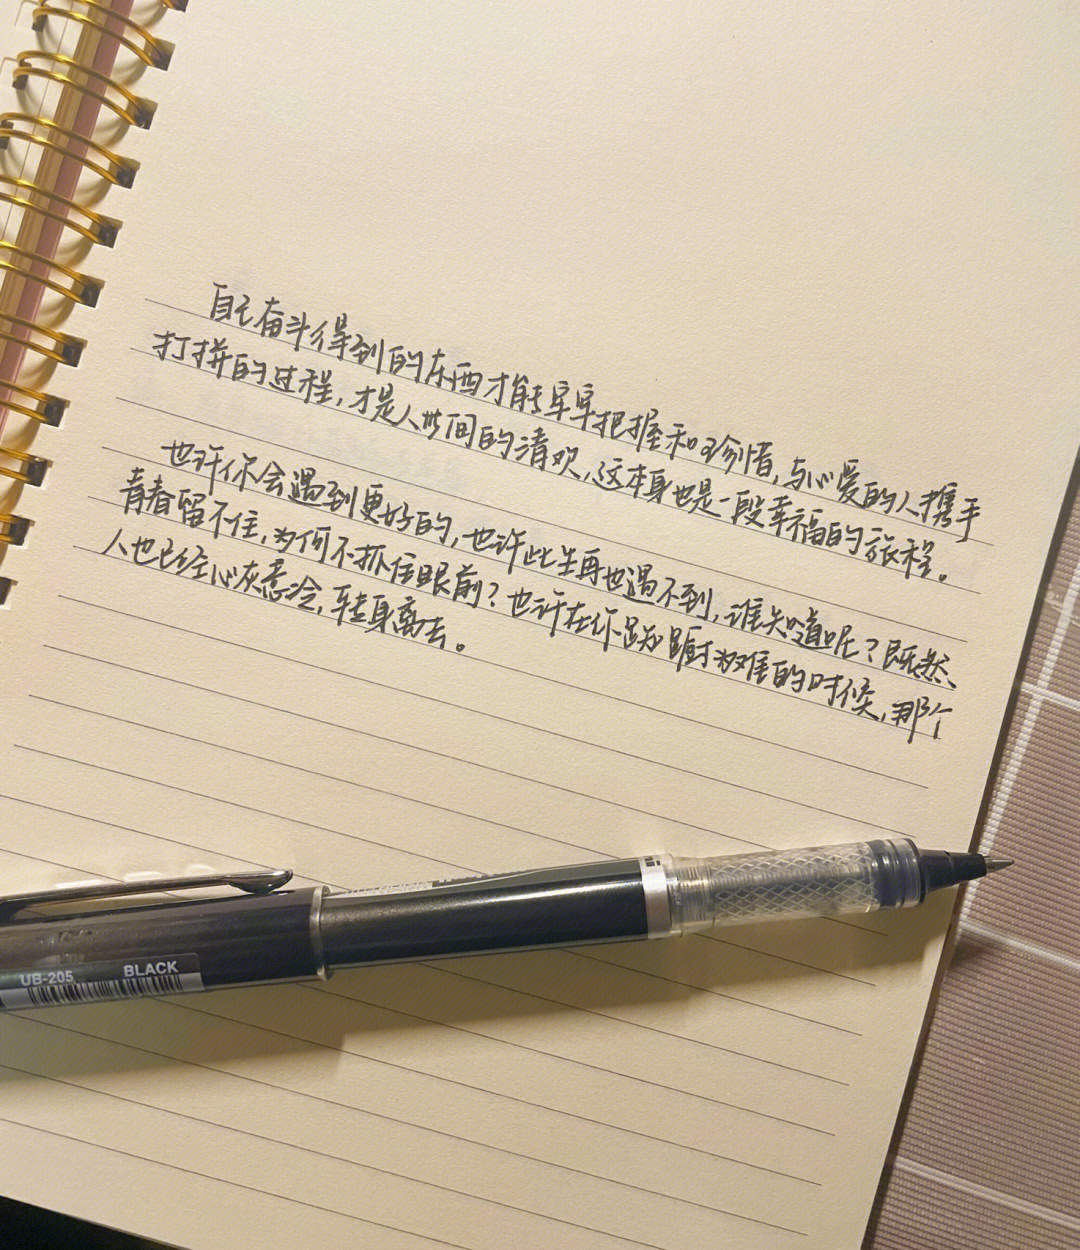 自己奋斗得到的东西才能早早把握和珍惜,与心爱的人携手
打拼的过程,才是人世间的清欢,这本身也是一段幸福的旅程。
也许你会遇到更好的,也许此生再也遇不到,谁知道呢?既然
青春留不住,为何不抓住眼前?也许在你踟蹰为难的时候,那个
人也已经心灰意冷,转身离去。
UB-205 BLACK